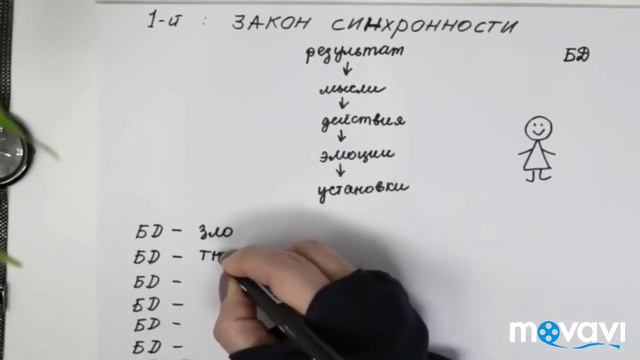 1-й : ЗАКОН СИНХРОННОСТИ
результат
БД
мысли
действия
эмоции
установки
БД - зло
БД -
БД -
БД -
БД -
БД -
movavi